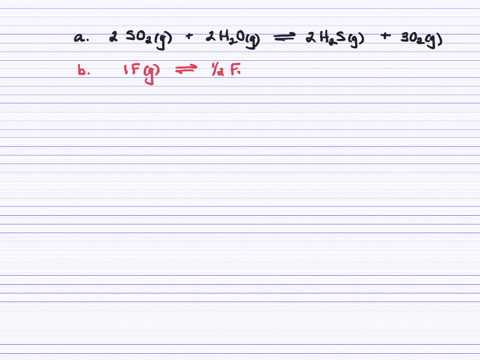 a. 2 SO₂(g) + 2 H₂O(g) ⇌ 2 H₂S(g) + 3O₂(g)
b. 1F(g) ⇌ ½ F